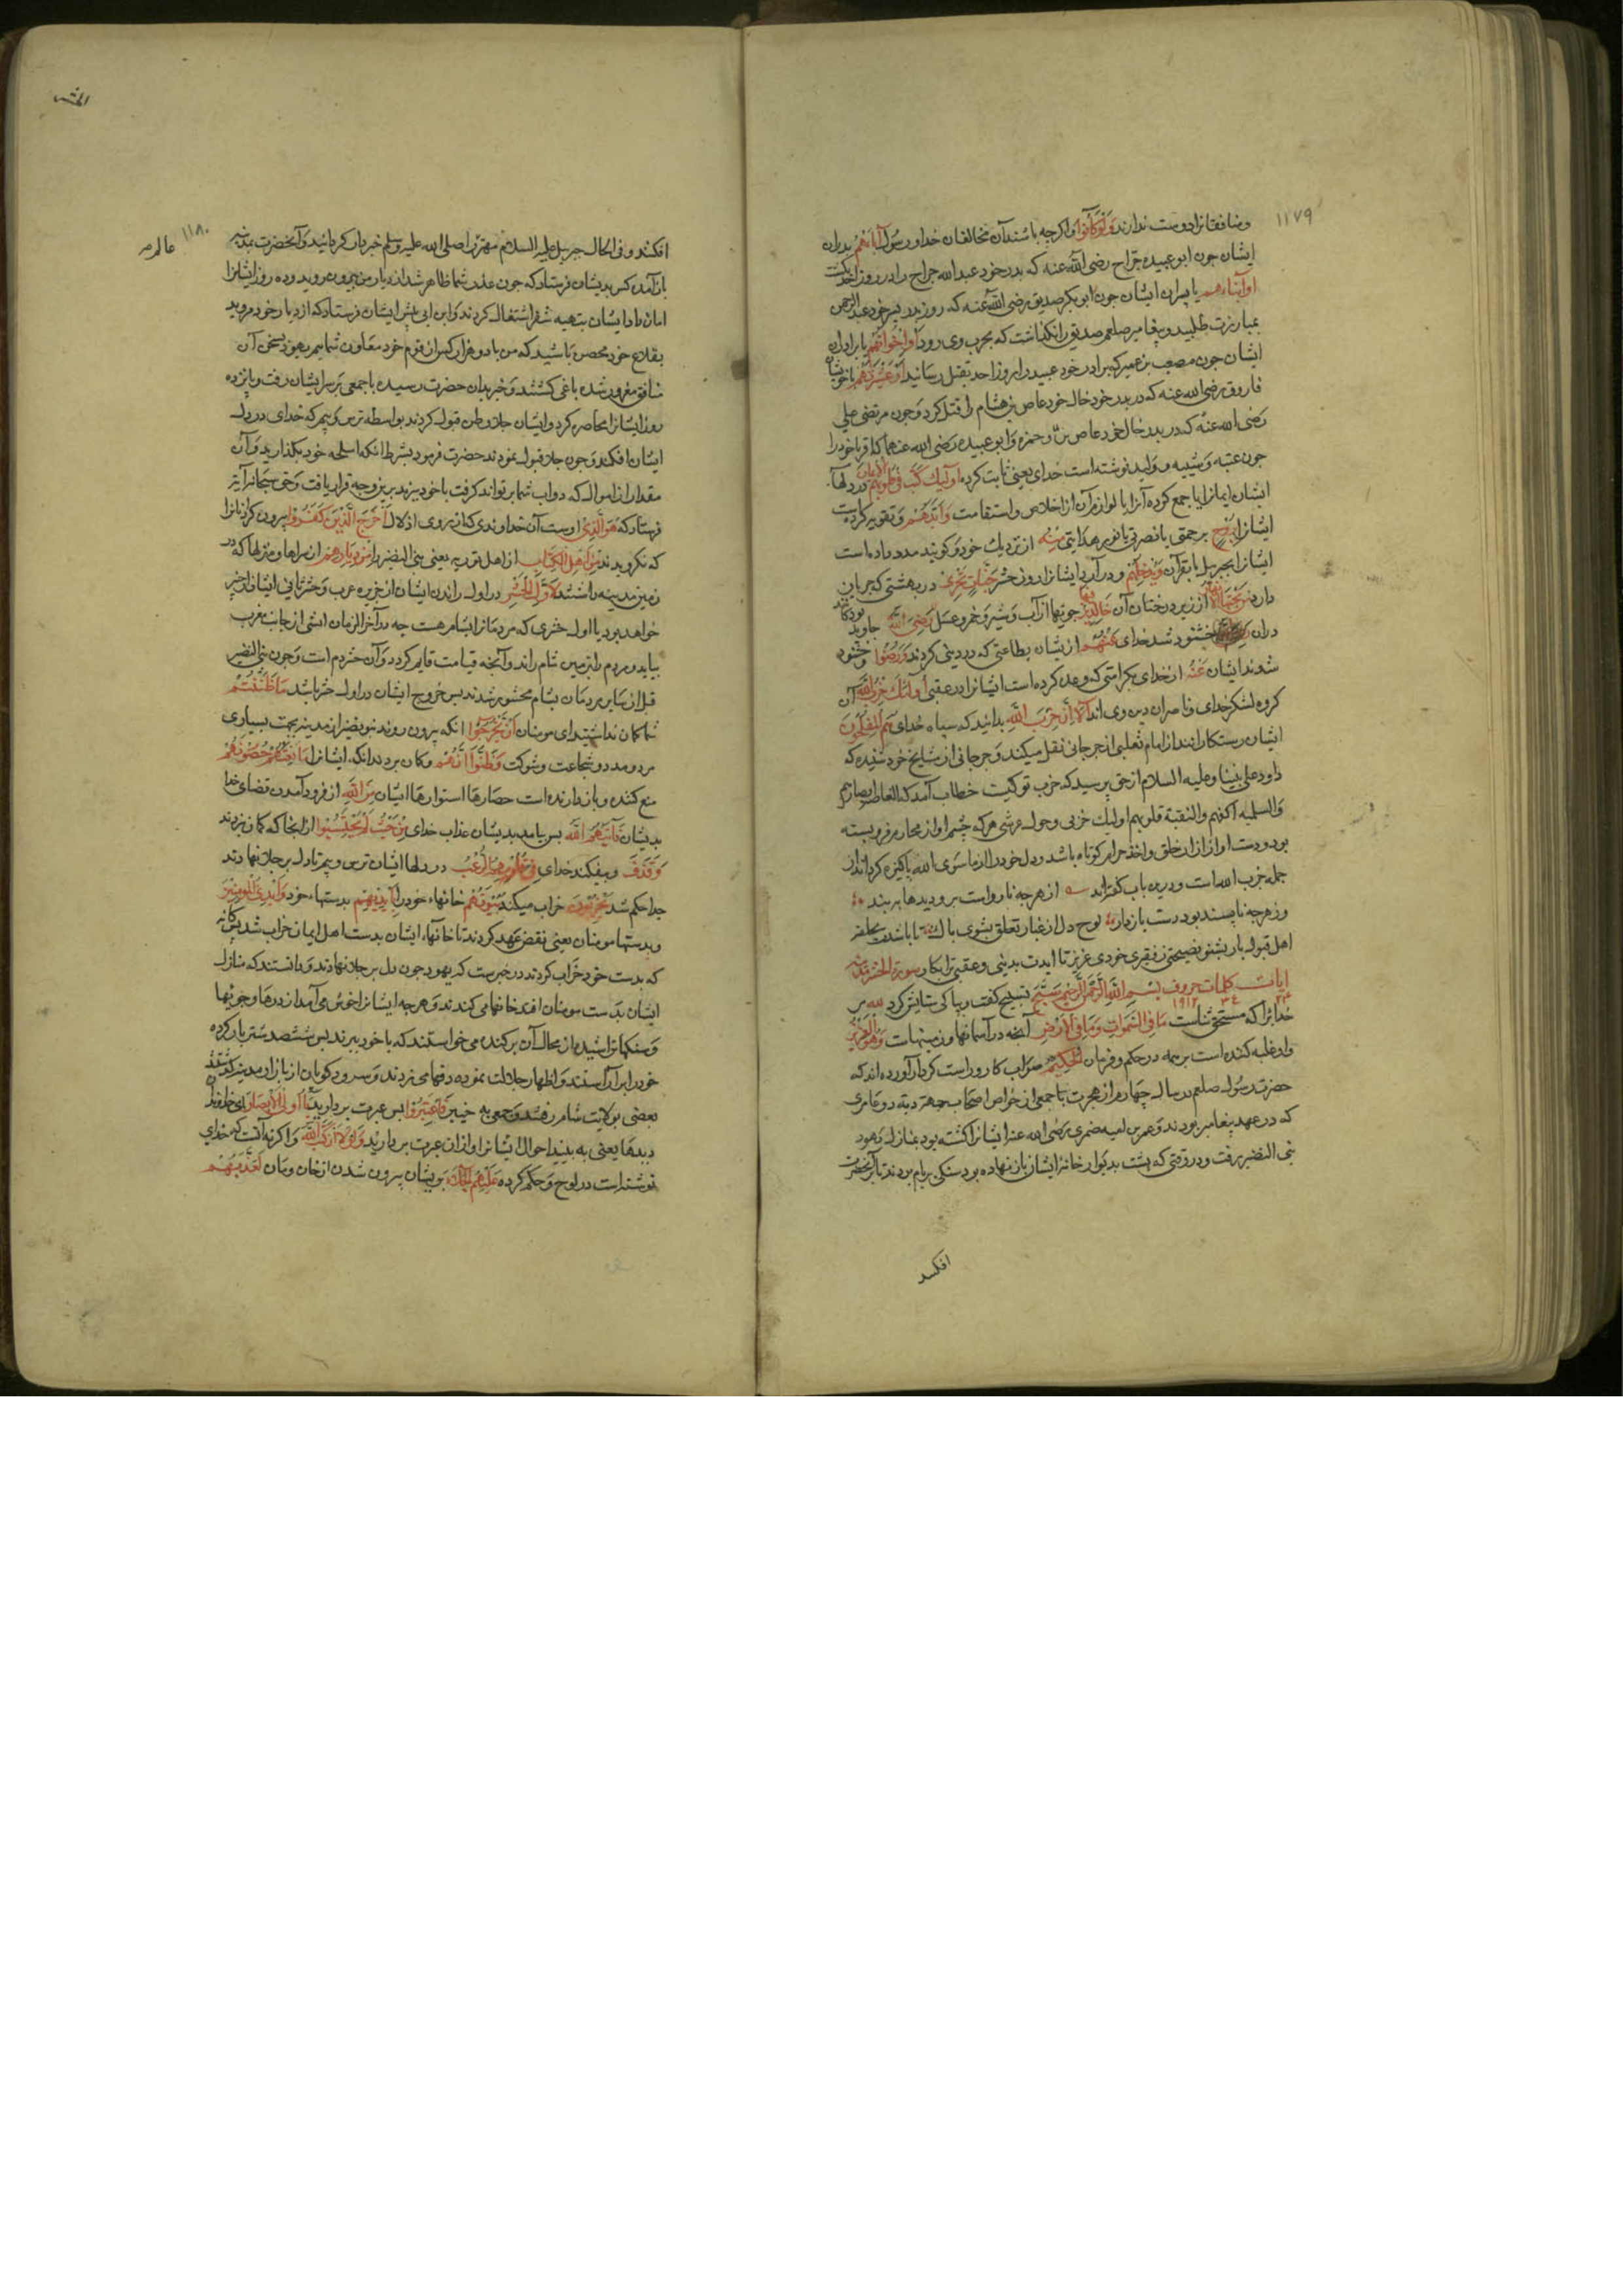 ١١٧٩
ومنافقانرا دوست ندارند وَلَوْ كَانُوا واکرچه باشند آن مخالفان خدا ورسول آبَاءَهُمْ پدران
ایشان جون ابو عبیده جراح رضی الله عنه که پدر خود عبد الله جراح را در روز احد بکشت
اَوْ اَبْنَاءَهُمْ یا پسران ایشان جون ابو بکر صدیق رضی الله عنه که روز بدر پسر خود عبد الرحمن
بمبارزت طلبید وپیغامبر صلعم صدیق را نکذاشت که بحرب وی رود اَوْ اِخْوَانَهُمْ یا برادران
ایشان جون مصعب بن عمیر که برادر خود عبید را روز احد بقتل رسانید اَوْ عَشِيرَتَهُمْ یا خویشان
فاروق رضی الله عنه که در بدر خود خال خود عاص بن هشام را قتل کرد وجون مرتضی علی
رضی الله عنه که در بدر خال خود عاص وحمزه وابو عبیده رضی الله عنهما که اقرباء خود را
جون عتبه وشیبه وولید نوشته است خدای یعنی ثابت کرده اُولٰئِكَ كَتَبَ فِي قُلُوبِهِمُ الْاِيمَانَ در دلهآ
ایشان ایمانرا یا جمع کرده آنرا با لوازم آن از اخلاص واستقامت وَاَيَّدَهُمْ وتقویه کرده است
ایشانرا بِرُوحٍ برحمتی یا نصرتی یا نور هدایتی مِنْهُ از نزدیك خود وکویند مدد داده است
ایشانرا بجبرئیل یا بقرآن وَيُدْخِلُهُمْ ودر آرد ایشانرا روز حشر جَنَّاتٍ تَجْرِي در بهشتی که جریان
دارد مِنْ تَحْتِهَا الْاَنْهَارُ از زیر درختان آن خَالِدِينَ فِيهَا جویها از آب وشیر وخمر وعسل رَضِيَ اللّٰهُ جاوید بودکانند
دران خشنود شد خدای عَنْهُمْ از یشان بطاعتی که در دنیی کردند وَرَضُوا وخشنود
شوند ایشان عَنْهُ از خدای بکرامتی که وعده کرده است ایشانرا در عقبی اُولٰئِكَ حِزْبُ اللّٰهِ آن
کروه لشکر خدای وناصران دین وی اند اَلَا اِنَّ حِزْبَ اللّٰهِ بدانید که سپاه خدای هُمُ الْمُفْلِحُونَ
ایشان رستکارانند از امام ثعلبی از جرجانی نقل میکند وجرجانی از مشایخ خود شنیده که
داود علی نبینا وعلیه السلام از حق پرسید که حزب تو کیست خطاب آمد که الغاضة ابصارهم
والسلیمه اکفهم والنقیة قلوبهم اولیك حزبی وحول عرشی هر که چشم او از محارم فروبسته
بود ودست او از ازار خلق واخذ حرام کوتاه باشد ودل خود را از ما سوی الله پاکیزه کرداند از
جمله حزب الله است ودرین باب کفته اند از هرچه نارواست برو دیدها ببند
وز هرچه ناپسند بود دست بازدار لوح دل از غبار تعلق بشوی پاك تا باشدت بحلقه
اهل قبول بار بشنو نصیحتی ز فقیری خود ای عزیز تا ایدت بدینی وعقبی ترا بکار سورة الحشر
ایات کلمات حروف بِسْمِ اللّٰهِ الرَّحْمٰنِ الرَّحِيمِ سَبَّحَ تسبیح کفت وبپاکی ستایش کرد لِلّٰهِ مر
١٩١٣
خدایرا که مستحق ثناست مَا فِي السَّمٰوَاتِ وَمَا فِي الْاَرْضِ آنچه در آسمانها وزمینهاست وَهُوَ الْعَزِيزُ
واو غلبه کننده است بر همه در حکم وفرمان الْحَكِيمُ صواب کار وراست کردار آورده اند که
حضرت رسول صلعم در سال چهارم از هجرت با جمعی از خواص اصحاب بجهة دیة دو عامری
که در عهد پیغامبر بودند وعمرو بن امیه ضمری رضی الله عنه ایشانرا کشته بود بمنازل یهود
بنی النضیر رفت ودر وقتی که پشت بدیوار خانهٔ ایشان باز نهاده بود سنکی بر بام بردند تا بر آنحضرت
افکند
١١٨٠
افکند وفی الحال جبرئیل علیه السلام مهتر را صلی الله علیه وسلم خبردار کردانید وآنحضرت بمدینه
باز آمد وکس بدیشان فرستاد که جون عذر شما ظاهر شد از دیار من بیرون روید وده روز ایشانرا
امان داد ایشان بتهیهٔ سفر اشتغال کردند وابن ابی پیش ایشان فرستاد که از دیار خود مروید
بقلاع خود محصن باشید که من با دو هزار کس از قوم خود معاون شما یم یهود بسخن آن
منافق مغرور شده یاغی کشتند وخبر بدان حضرت رسیده با جمعی بر سر ایشان رفت وپانزده
روز ایشانرا محاصره کرد وایشان جلاء وطن قبول کردند بواسطهٔ ترس وبیم که خدای در دل
ایشان افکند وجون جلا قبول نمودند حضرت فرمود بشرط انکه اسلحه خود بکذارید وآن
مقدار از اموال که دواب شما بر تواند کرفت با خود ببرید برین وجه قرار یافت وحق سبحانه آیة
فرستاد که هُوَ الَّذِي اوست آن خداوندی که از روی اذلال اَخْرَجَ الَّذِينَ كَفَرُوا بیرون کرد آنانرا
که نکرویدند مِنْ اَهْلِ الْكِتَابِ از اهل توریه یعنی بنی النضیر را مِنْ دِيَارِهِمْ از سراها ومنزلها که در
زمین مدینه داشتند لِاَوَّلِ الْحَشْرِ در اول راندن ایشان از جزیره عرب وحشر ثانی ایشان از خیبر
خواهد بود یا اول حشری که مردمانرا بشام هست چه در آخر الزمان آتشی از جانب مغرب
بیاید ومردم را بزمین شام راند وآنجا قیامت قایم کردد وآن حشر دوم است وجون بنی النضیر
قبل از سایر مردمان بشام محشور شدند پس خروج ایشان در اول حشر باشد مَا ظَنَنْتُمْ
شما کمان نداشتید ای مومنان اَنْ يَخْرُجُوا انکه بیرون روند بنو نضیر از مدینه بجهت بسیاری
مردومدد وشجاعت وشوکت وَظَنُّوا اَنَّهُمْ وکمان بردند انکه ایشانرا مَانِعَتُهُمْ حُصُونُهُمْ
منع کننده وبازدارنده است حصارها واستوارها ایشان مِنَ اللّٰهِ از فرود آمدن قضای خدا
بدیشان فَاَتٰيهُمُ اللّٰهُ پس بیامد بدیشان عذاب خدای مِنْ حَيْثُ لَمْ يَحْتَسِبُوا از انجا که کمان نبردند
وَقَذَفَ وبیفکند خدای فِي قُلُوبِهِمُ الرُّعْبَ در دلها ایشان ترس وبیم تا دل بر جلا نهادند
جدا حکم شد يُخْرِبُونَ خراب میکنند بُيُوتَهُمْ خانهاء خود را بِاَيْدِيهِمْ بدستهاء خود وَاَيْدِي الْمُؤْمِنِينَ
وبدستها مومنان یعنی نقض عهد کردند تا خانهاء ایشان بدست اهل ایمان خراب شد
که بدست خود خراب کردند در خبرست که یهود جون دل بر جلا نهادند ودانستند که منازل
ایشان بدست مومنان افتد خانها می کندند وهرچه ایشانرا خوش می آمد از درها وچوبها
وسنکها تراشیده از محال آن برکنده می خواستند که با خود ببرند پس ششصد شتر بار کرده
خود را بر آراستند واظهار جلادت نموده دفها می زدند وسرود کویان از بازار مدینه کذشتند
بعضی بولایت شام رفتند وجمعی به خیبر فَاعْتَبِرُوا پس عبرت بردارید يَا اُولِي الْاَبْصَارِ ای خداوندان
دیدها یعنی به بینید احوال ایشانرا واز ان عبرت بردارید وَلَوْلَا اَنْ كَتَبَ اللّٰهُ واکر نه آنست که خدای
نوشته است در لوح وحکم کرده عَلَيْهِمُ الْجَلَاءَ بریشان بیرون شدن از خان ومان لَعَذَّبَهُمْ